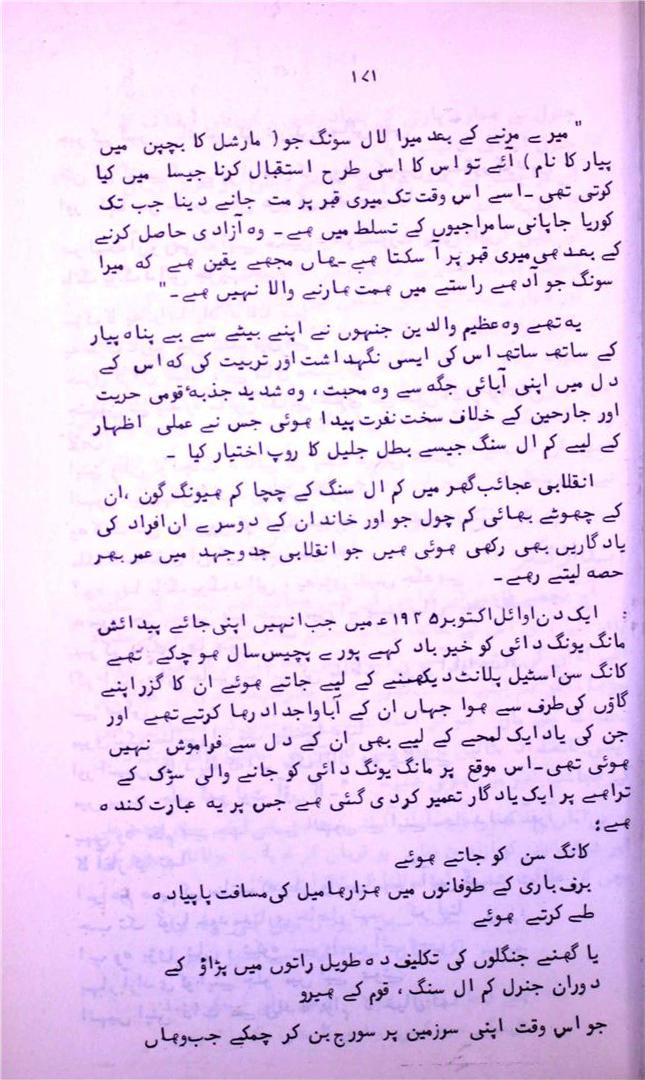 ۱۷۱
" میرے مرنے کے بعد میرا لال سونگ جو ( مارشل کا بچپن میں
پیار کا نام ) آئے تو اس کا اسی طرح استقبال کرنا جیسا میں کیا
کرتی تھی ۔ اسے اس وقت تک میری قبر پر مت جانے دینا جب تک
کوریا جاپانی سامراجیوں کے تسلط میں ھے ۔ وہ آزادی حاصل کرنے
کے بعد ھی میری قبر پر آ سکتا ھے ۔ ھاں مجھے یقین ھے کہ میرا
سونگ جو آدھے راستے میں ھمت ھارنے والا نہیں ھے ۔"
یہ تھے وہ عظیم والدین جنہوں نے اپنے بیٹے سے بے پناہ پیار
کے ساتھ ساتھ اس کی ایسی نگہداشت اور تربیت کی کہ اس کے
دل میں اپنی آبائی جگہ سے وہ محبت ، وہ شدید جذبۂ قومی حریت
اور جارحین کے خلاف سخت نفرت پیدا ھوئی جس نے عملی اظہار
کے لیے کم ال سنگ جیسے بطل جلیل کا روپ اختیار کیا ۔
انقلابی عجائب گھر میں کم ال سنگ کے چچا کم ھیونگ گون ، ان
کے چھوٹے بھائی کم چول جو اور خاندان کے دوسرے ان افراد کی
یادگاریں بھی رکھی ھوئی ھیں جو انقلابی جدوجہد میں عمر بھر
حصہ لیتے رھے ۔
ایک دن اوائل اکتوبر ۱۹۴۵ء میں جب انہیں اپنی جائے پیدائش
مانگ یونگ دائی کو خیر باد کہے پورے پچیس سال ھو چکے تھے
کانگ سن اسٹیل پلانٹ دیکھنے کے لیے جاتے ھوئے ان کا گزر اپنے
گاؤں کی طرف سے ھوا جہاں ان کے آباواجداد رھا کرتے تھے اور
جن کی یاد ایک لمحے کے لیے بھی ان کے دل سے فراموش نہیں
ھوئی تھی ۔ اس موقع پر مانگ یونگ دائی کو جانے والی سڑک کے
تراھے پر ایک یادگار تعمیر کردی گئی ھے جس پر یہ عبارت کندہ
ھے :
کانگ سن کو جاتے ھوئے
برف باری کے طوفانوں میں ھزارھا میل کی مسافت پاپیادہ
طے کرتے ھوئے
یا گھنے جنگلوں کی تکلیف دہ طویل راتوں میں پڑاؤ کے
دوران جنرل کم ال سنگ ، قوم کے ھیرو
جو اس وقت اپنی سرزمین پر سورج بن کر چمکے جب وھاں